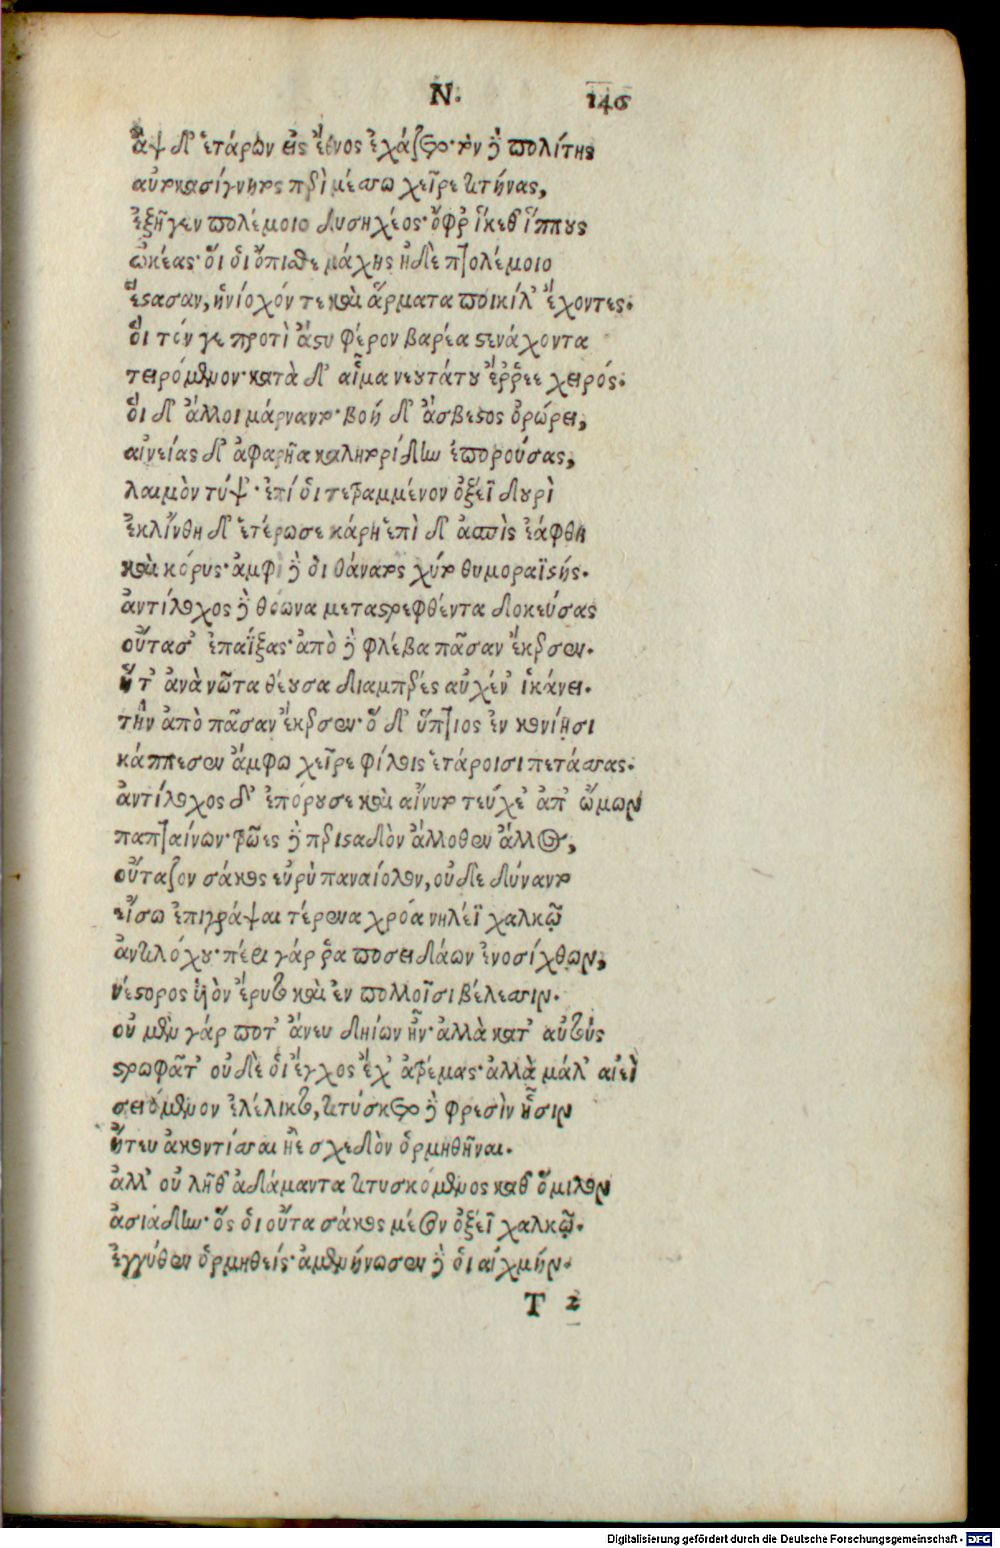 Ν. 146
ἂψ δ' ἑτάρων εἰς ἔθνος ἐχάζετο· τὸν δὲ πολίτης
αὐτοκασίγνητος περὶ μέσσῳ χεῖρε τιτήνας,
ἐξῆγεν πολέμοιο δυσηχέος· ὄφρ' ἵκεθ' ἵππους
ὠκέας· οἵ οἱ ὄπισθε μάχης ἠδὲ πτολέμοιο
ἕστασαν, ἡνίοχόν τε καὶ ἅρματα ποικίλ' ἔχοντες·
οἳ τόν γε προτὶ ἄστυ φέρον βαρέα στενάχοντα
τειρόμενον· κατὰ δ' αἷμα νεουτάτου ἔῤῥεε χειρός·
οἱ δ' ἄλλοι μάρναντο· βοὴ δ' ἄσβεστος ὀρώρει,
αἰνείας δ' ἀφαρῆα καλητορίδην ἐπορούσας,
λαιμὸν τύψ'· ἐπί οἱ τετραμμένον ὀξέϊ δουρὶ
ἐκλίνθη δ' ἑτέρωσε κάρη ἐπὶ δ' ἀσπὶς ἑάφθη
καὶ κόρυς· ἀμφὶ δέ οἱ θάνατος χύτο θυμοραϊστής·
ἀντίλοχος δὲ θόωνα μεταστρεφθέντα δοκεύσας
οὔτασ' ἐπαΐξας· ἀπὸ δὲ φλέβα πᾶσαν ἔκερσεν·
ἥτ' ἀνὰ νῶτα θέουσα διαμπερὲς αὐχέν' ἱκάνει·
τὴν ἀπὸ πᾶσαν ἔκερσεν· ὃ δ' ὕπτιος ἐν κονίῃσι
κάππεσεν ἄμφω χεῖρε φίλοις ἑτάροισι πετάσσας·
ἀντίλοχος δ' ἐπόρουσε καὶ αἴνυτο τεύχε' ἀπ' ὤμων
παπταίνων· τρῶες δὲ περισταδὸν ἄλλοθεν ἄλλος,
οὔταζον σάκος εὐρὺ παναίολον, οὐδὲ δύναντο
εἴσω ἐπιγράψαι τέρενα χρόα νηλέϊ χαλκῷ
ἀντιλόχου· πέρι γάρ ῥα ποσειδάων ἐνοσίχθων,
νέστορος υἱὸν ἔρυτο καὶ ἐν πολλοῖσι βέλεσσιν·
οὐ μὲν γάρ ποτ' ἄνευ δηίων ἦν· ἀλλὰ κατ' αὐτοὺς
στρωφᾶτ' οὐδέ οἱ ἔγχος ἔχ' ἀτρέμας· ἀλλὰ μάλ' αἰεὶ
σειόμενον ἐλέλικτο, τιτύσκετο δὲ φρεσὶν ᾗσιν
ἤτευ ἀκοντίσσαι ἠὲ σχεδὸν ὁρμηθῆναι·
ἀλλ' οὐ λῆθ' ἀδάμαντα τιτυσκόμενος καθ' ὅμιλον
ἀσιάδην· ὅς οἱ οὖτα σάκος μέσον ὀξέϊ χαλκῷ·
ἐγγύθεν ὁρμηθείς· ἀμενήνωσεν δέ οἱ αἰχμήν·
T 2
Digitalisierung gefördert durch die Deutsche Forschungsgemeinschaft - DFG